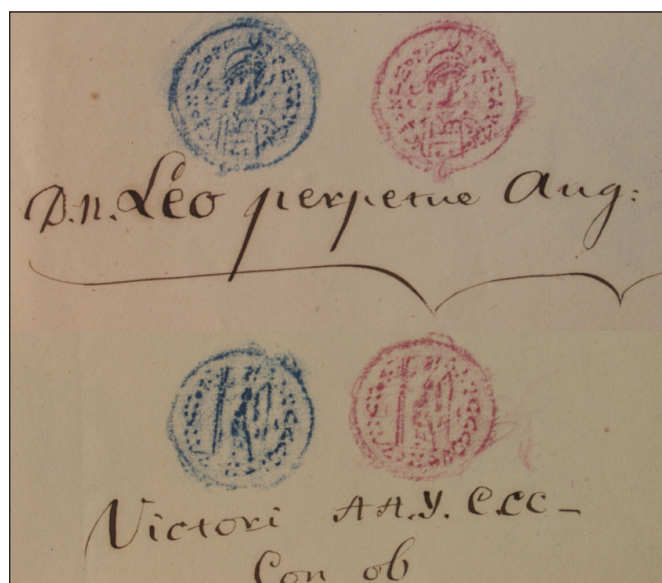 D.N. Leo perpetue Aug:
Victori AA.Y. C.CC-
Con ob